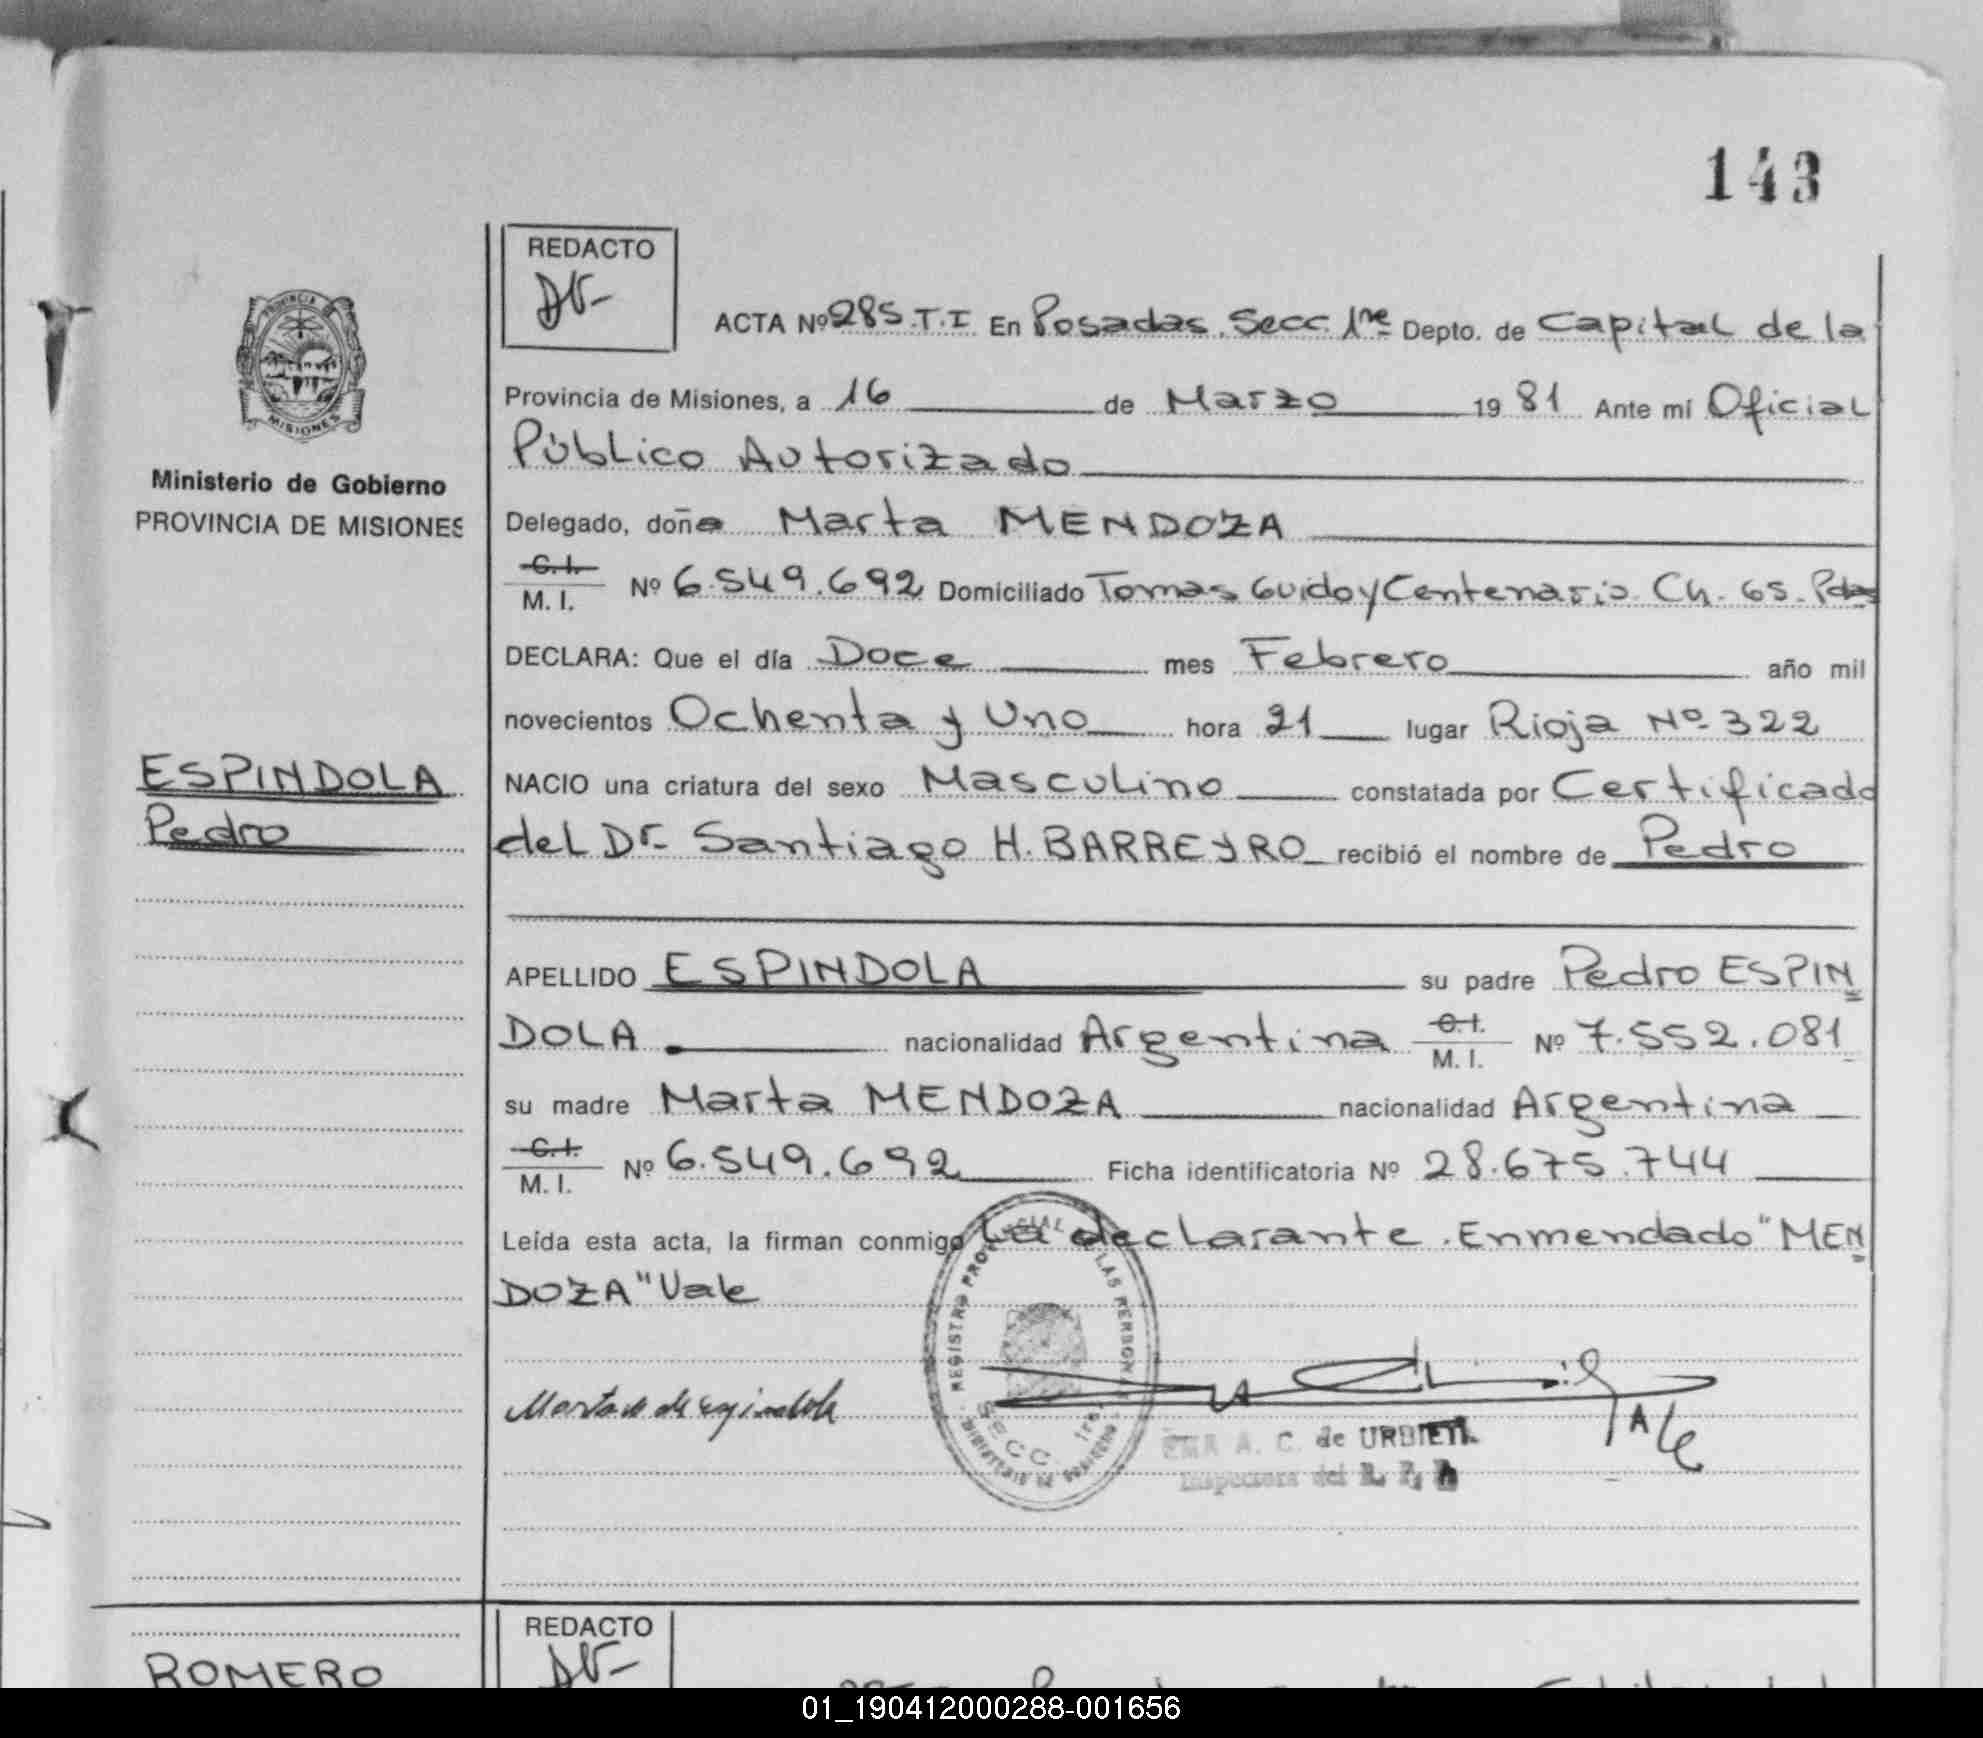 143
REDACTO
ACTA Nº 285 T.I En Posadas Secc. 1ra Depto. de Capital de la
Provincia de Misiones, a 16 de Marzo 19 81 Ante mí Oficial
Público Autorizado
Ministerio de Gobierno
PROVINCIA DE MISIONES
Delegado, doña Marta MENDOZA
C. I.
M. I. Nº 6.549.692 Domiciliado Tomas Guido y Centenario Ch. 65. Pdas
DECLARA: Que el día Doce mes Febrero año mil
novecientos Ochenta y Uno hora 21 lugar Rioja Nº 322
ESPINDOLA
Pedro
NACIO una criatura del sexo Masculino constatada por Certificado
del Dr. Santiago H. BARREYRO recibió el nombre de Pedro
APELLIDO ESPINDOLA su padre Pedro ESPIN
DOLA nacionalidad Argentina C. I. M. I. Nº 7.552.081
su madre Marta MENDOZA nacionalidad Argentina
C. I.
M. I. Nº 6.549.692 Ficha identificatoria Nº 28.675.744
Leída esta acta, la firman conmigo La declarante. Enmendado "MEN
DOZA" Vale
Marta M de espindola
A. C. de URBIETA
Inspectora del R. P. P.
REGISTRO PROVINCIAL DE LAS PERSONAS
SECC. 1ra.
MISIONES
PROVINCIA
MISIONES
REDACTO
ROMERO
01_190412000288-001656